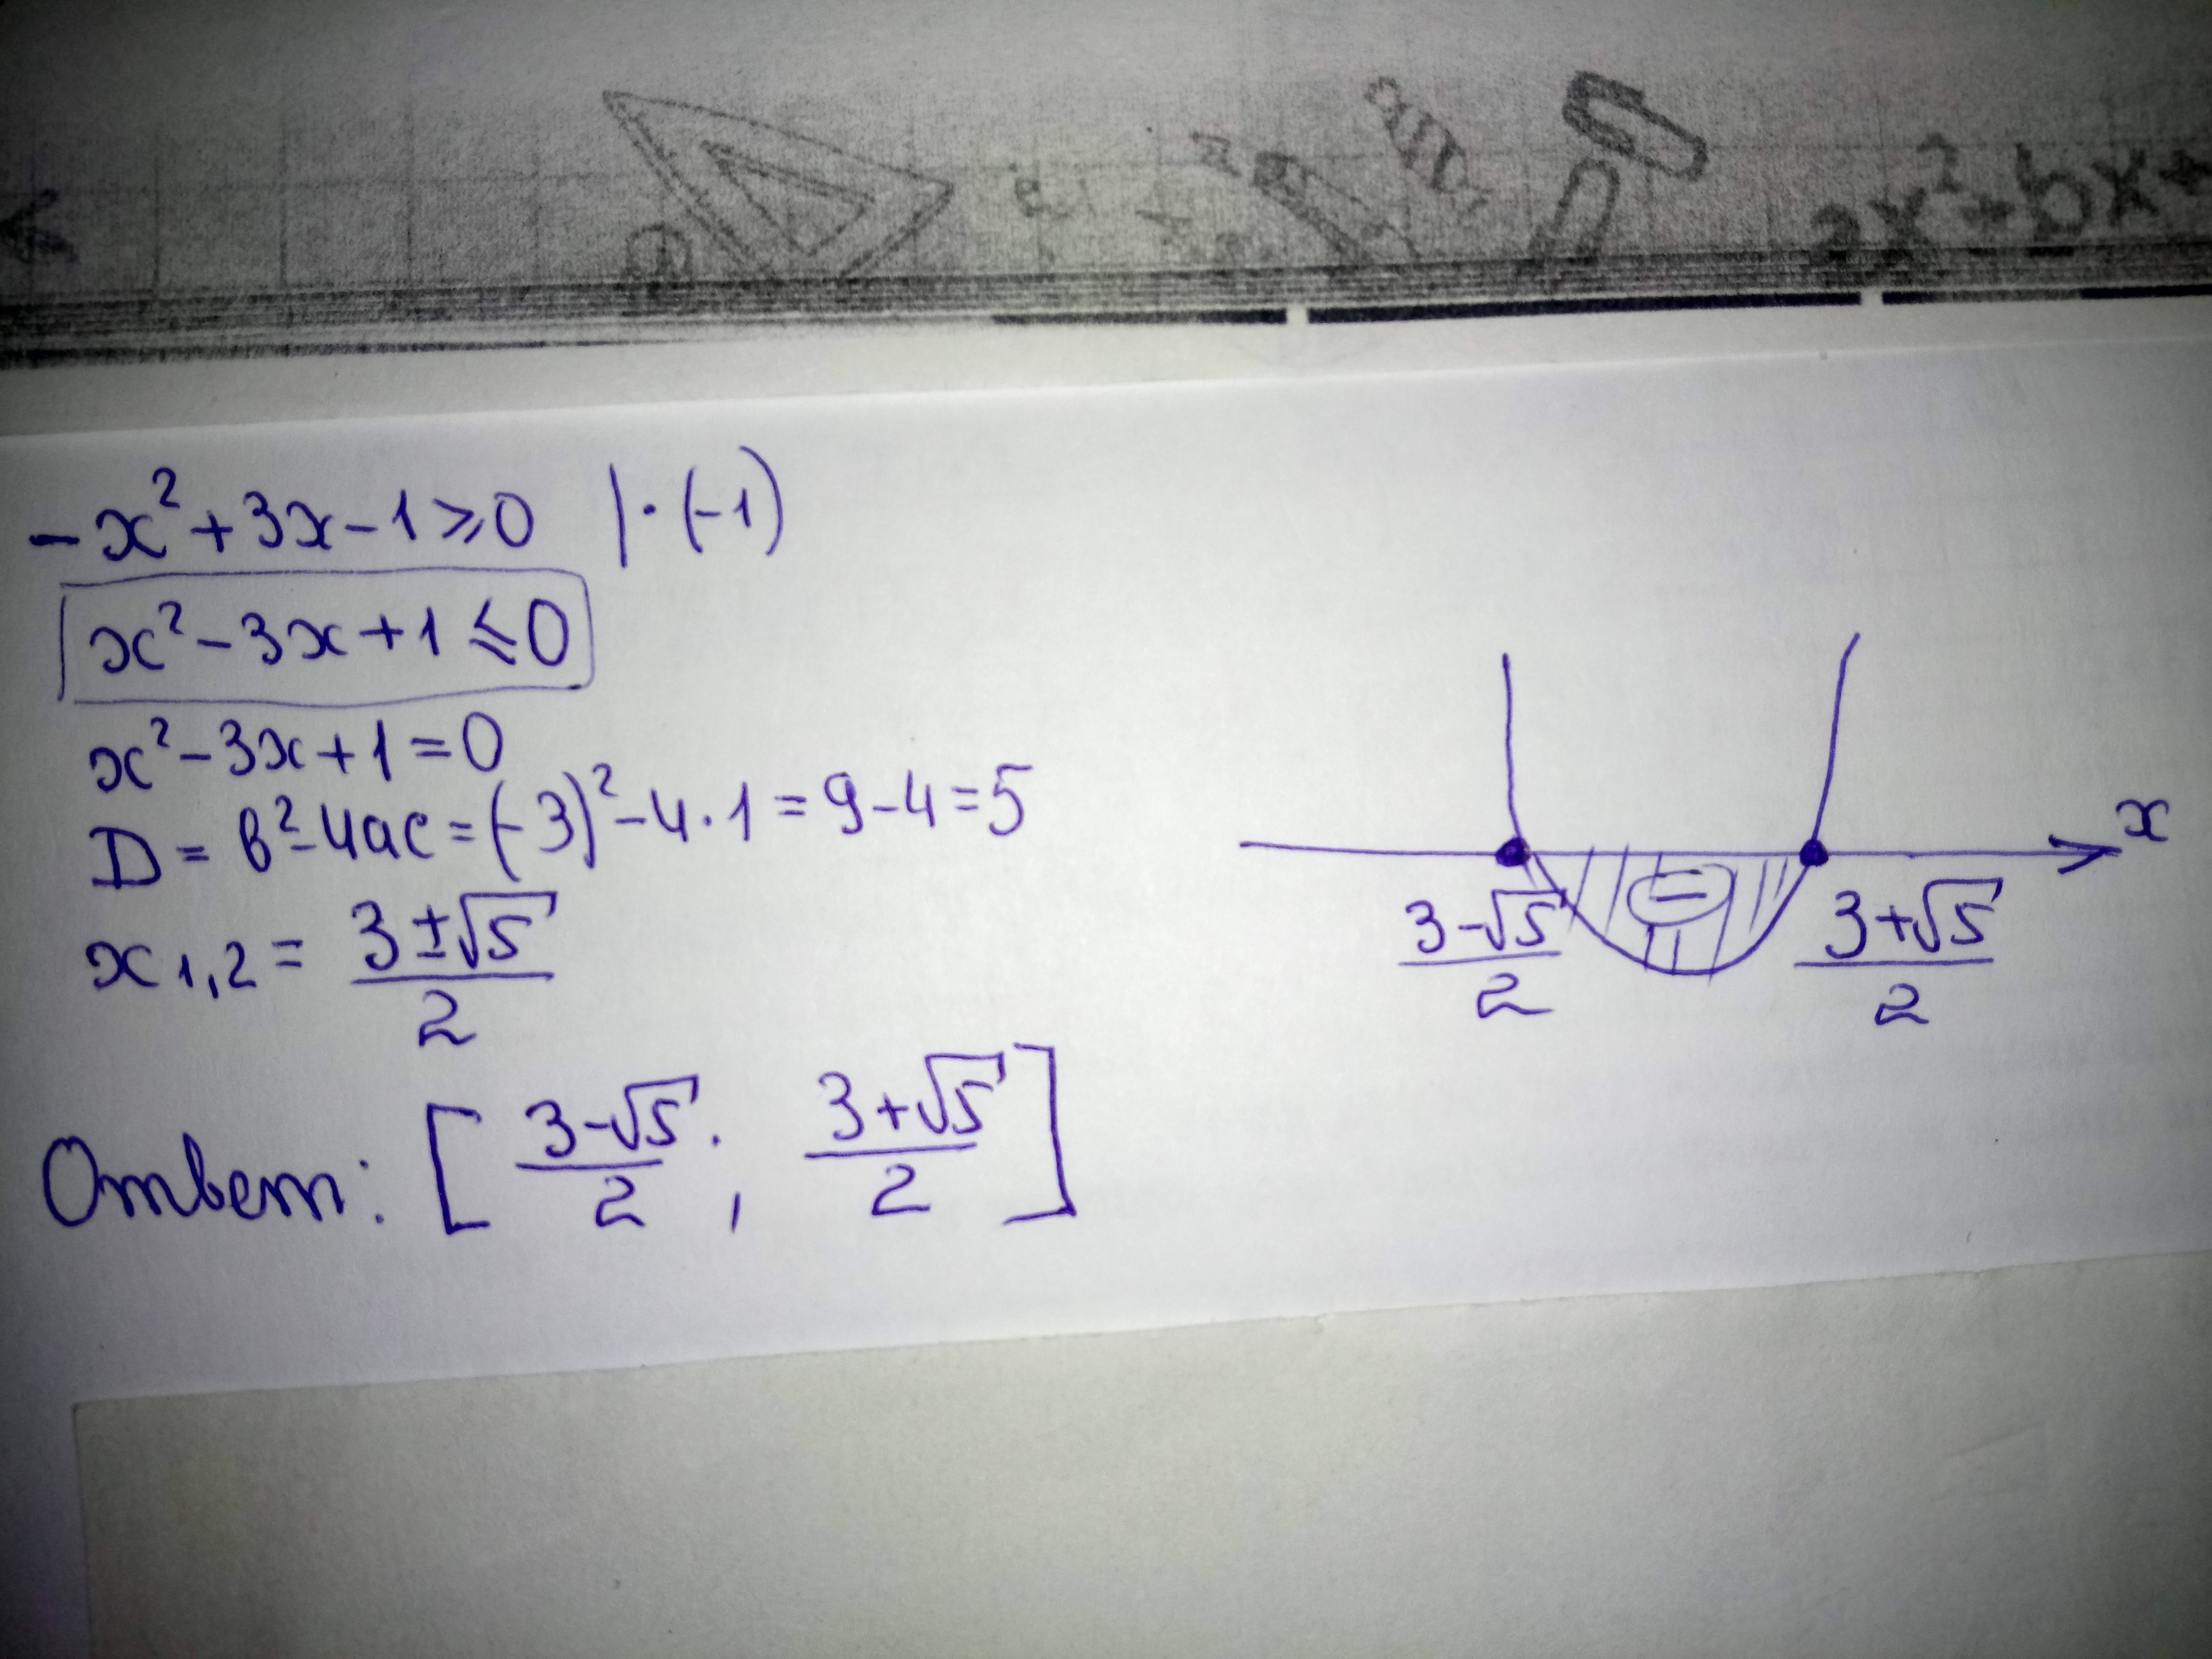 ax²+bx+
-x²+3x-1⩾0 |·(-1)
x²-3x+1⩽0
x²-3x+1=0
D=b²-4ac=(-3)²-4·1=9-4=5
x₁,₂=(3±√5)/2
x
(3-√5)/2 (3+√5)/2
Ответ: [(3-√5)/2; (3+√5)/2]